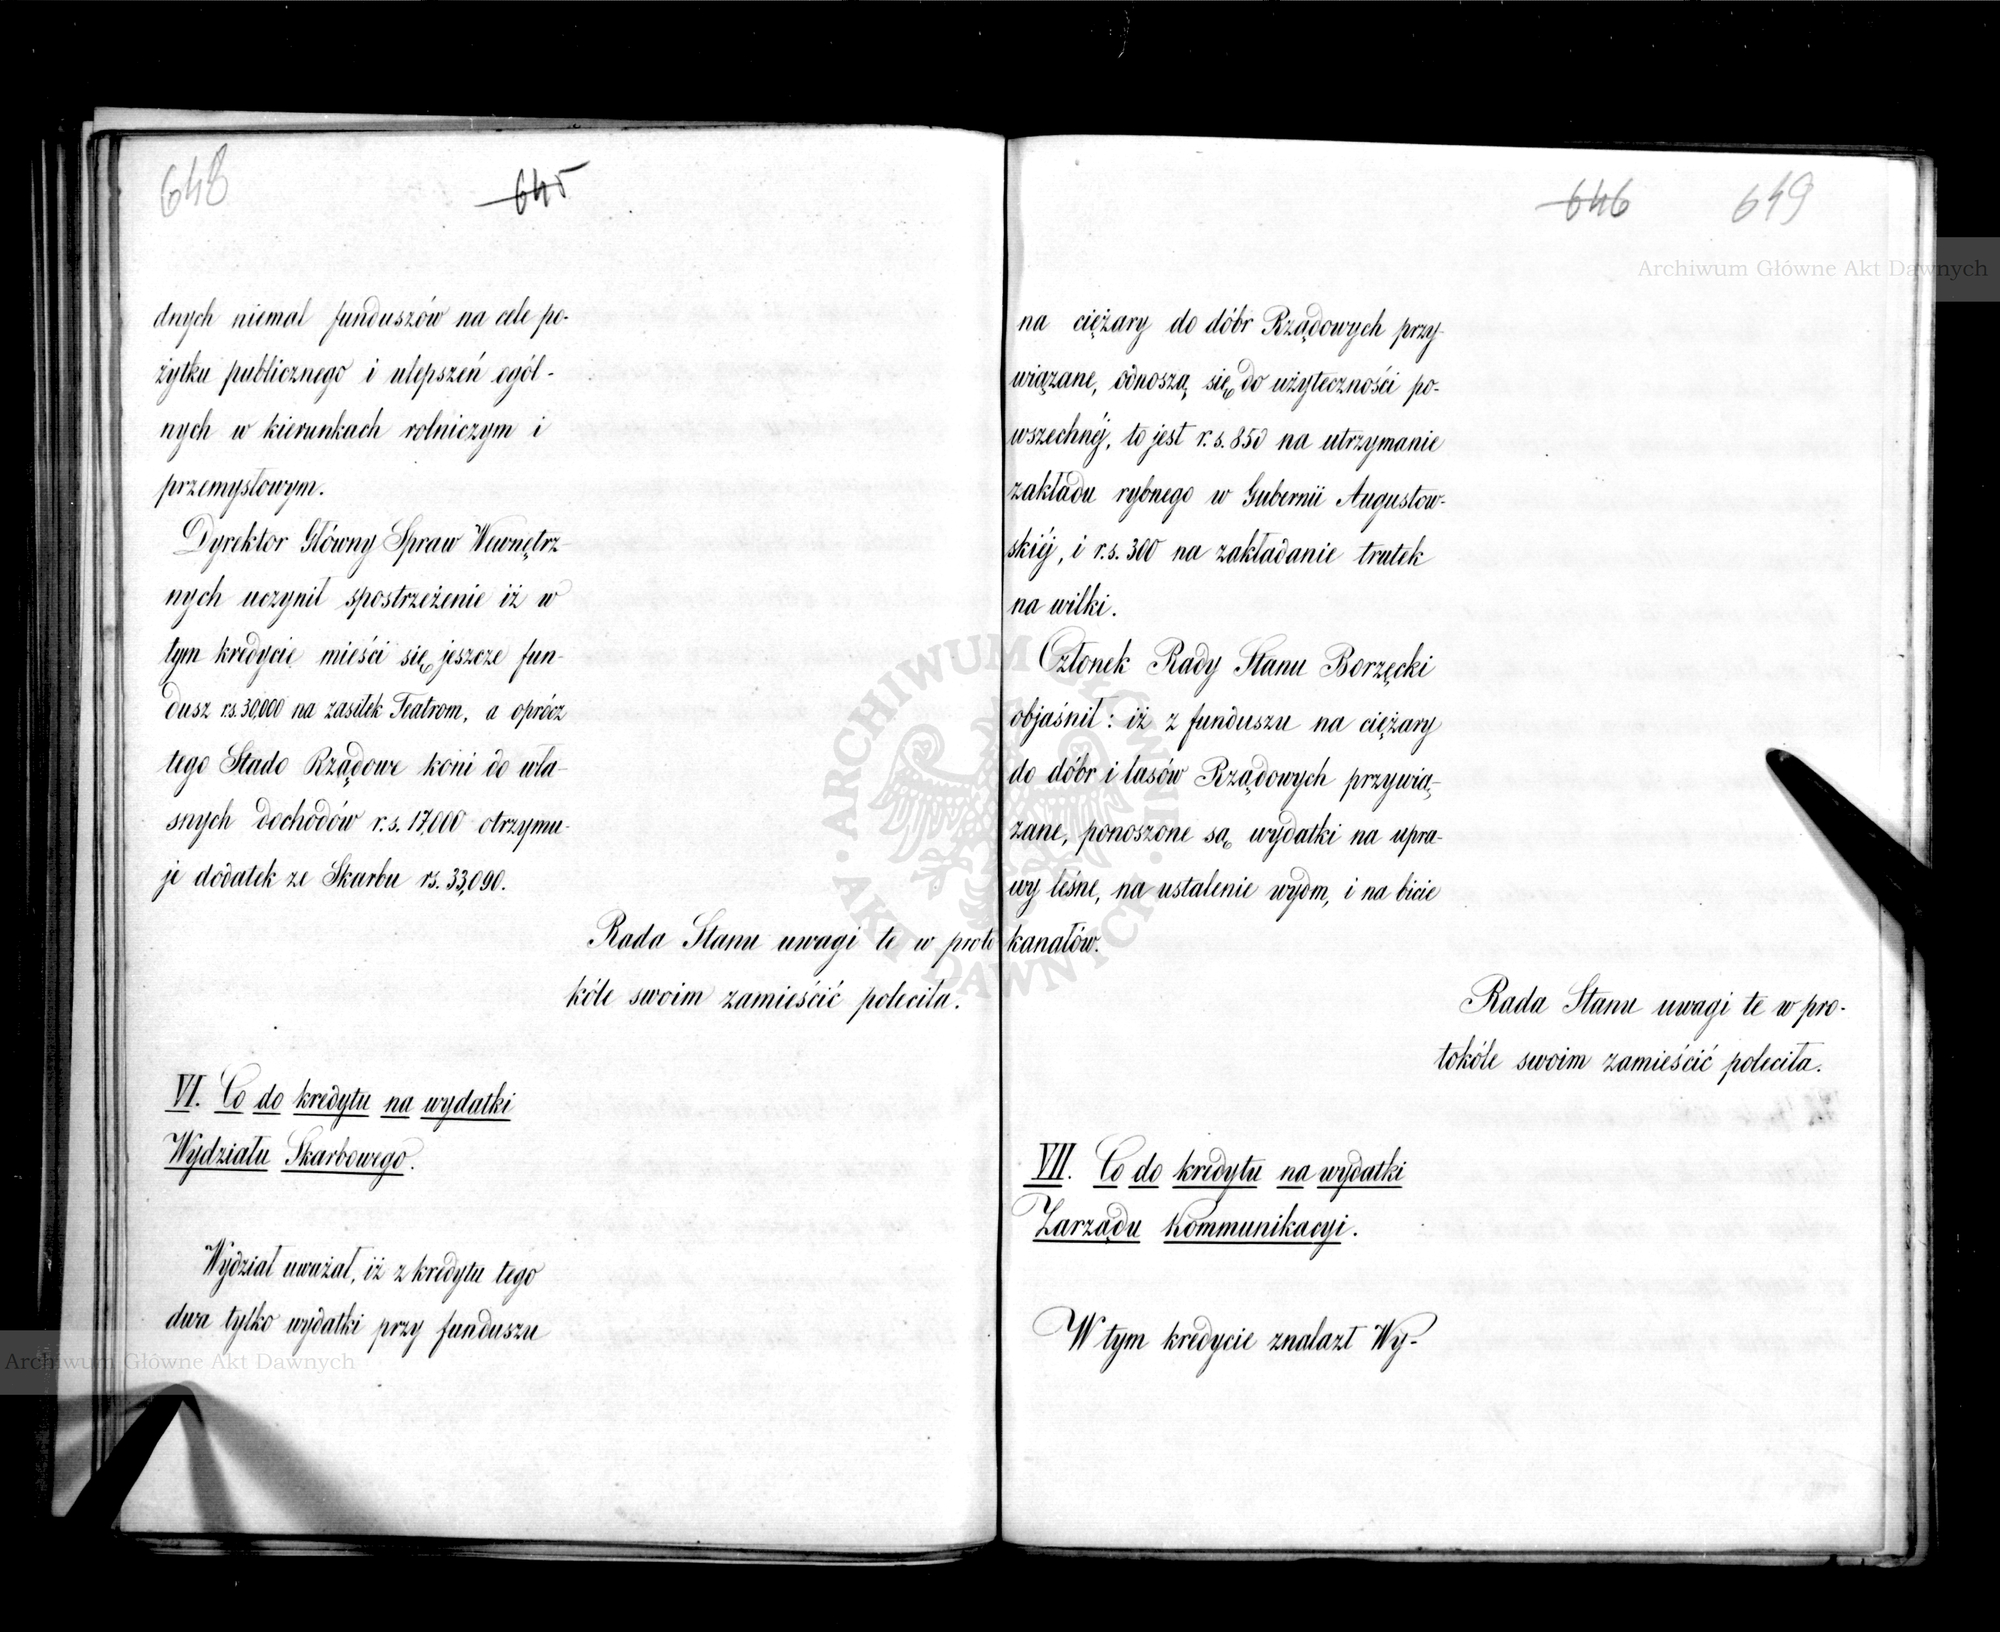 648
645
dnych niemal funduszów na cele po-
żytku publicznego i ulepszeń ogól-
nych w kierunkach rolniczym i
przemysłowym.
Dyrektor Główny Spraw Wewnętrz-
nych uczynił spostrzeżenie iż w
tym kredycie mieści się jeszcze fun-
dusz rs. 30,000 na zasiłek Teatrom, a oprócz
tego Stado Rządowe koni do wła-
snych dochodów r.s. 17,000 otrzymu-
je dodatek ze Skarbu rs. 33,090.
Rada Stanu uwagi te w proto
kóle swoim zamieścić poleciła.
VI. Co do kredytu na wydatki
Wydziału Skarbowego.
Wydział uważał, iż z kredytu tego
dwa tylko wydatki przy funduszu
Archiwum Główne Akt Dawnych
646
649
Archiwum Główne Akt Dawnych
na ciężary do dóbr Rządowych przy-
wiązane, odnoszą się do użyteczności po-
wszechnéj, to jest r.s. 850 na utrzymanie
zakładu rybnego w Gubernii Augustow-
skiéj, i r.s. 300 na zakładanie trutek
na wilki.
Członek Rady Stanu Borzęcki
objaśnił: iż z funduszu na ciężary
do dóbr i lasów Rządowych przywią-
zane, ponoszone są wydatki na upra-
wy leśne, na ustalenie wydm, i na bicie
kanałów.
Rada Stanu uwagi te w pro-
tokóle swoim zamieścić poleciła.
VII. Co do kredytu na wydatki
Zarządu Kommunikacyi.
W tym kredycie znalazł Wy-
ARCHIWUM GŁÓWNE · AKT DAWNYCH ·